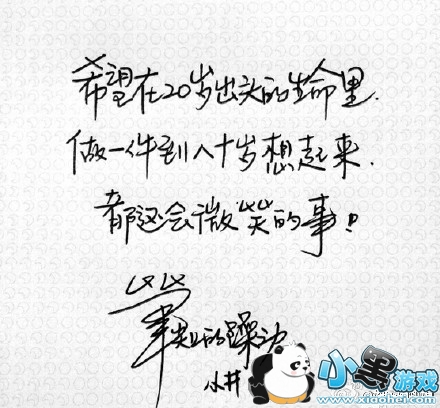 希望在20岁出头的生命里.
做一件到八十岁想起来.
都还会微笑的事!
筆尖的躁动
小井
小黑游戏
www.xiaohei.com